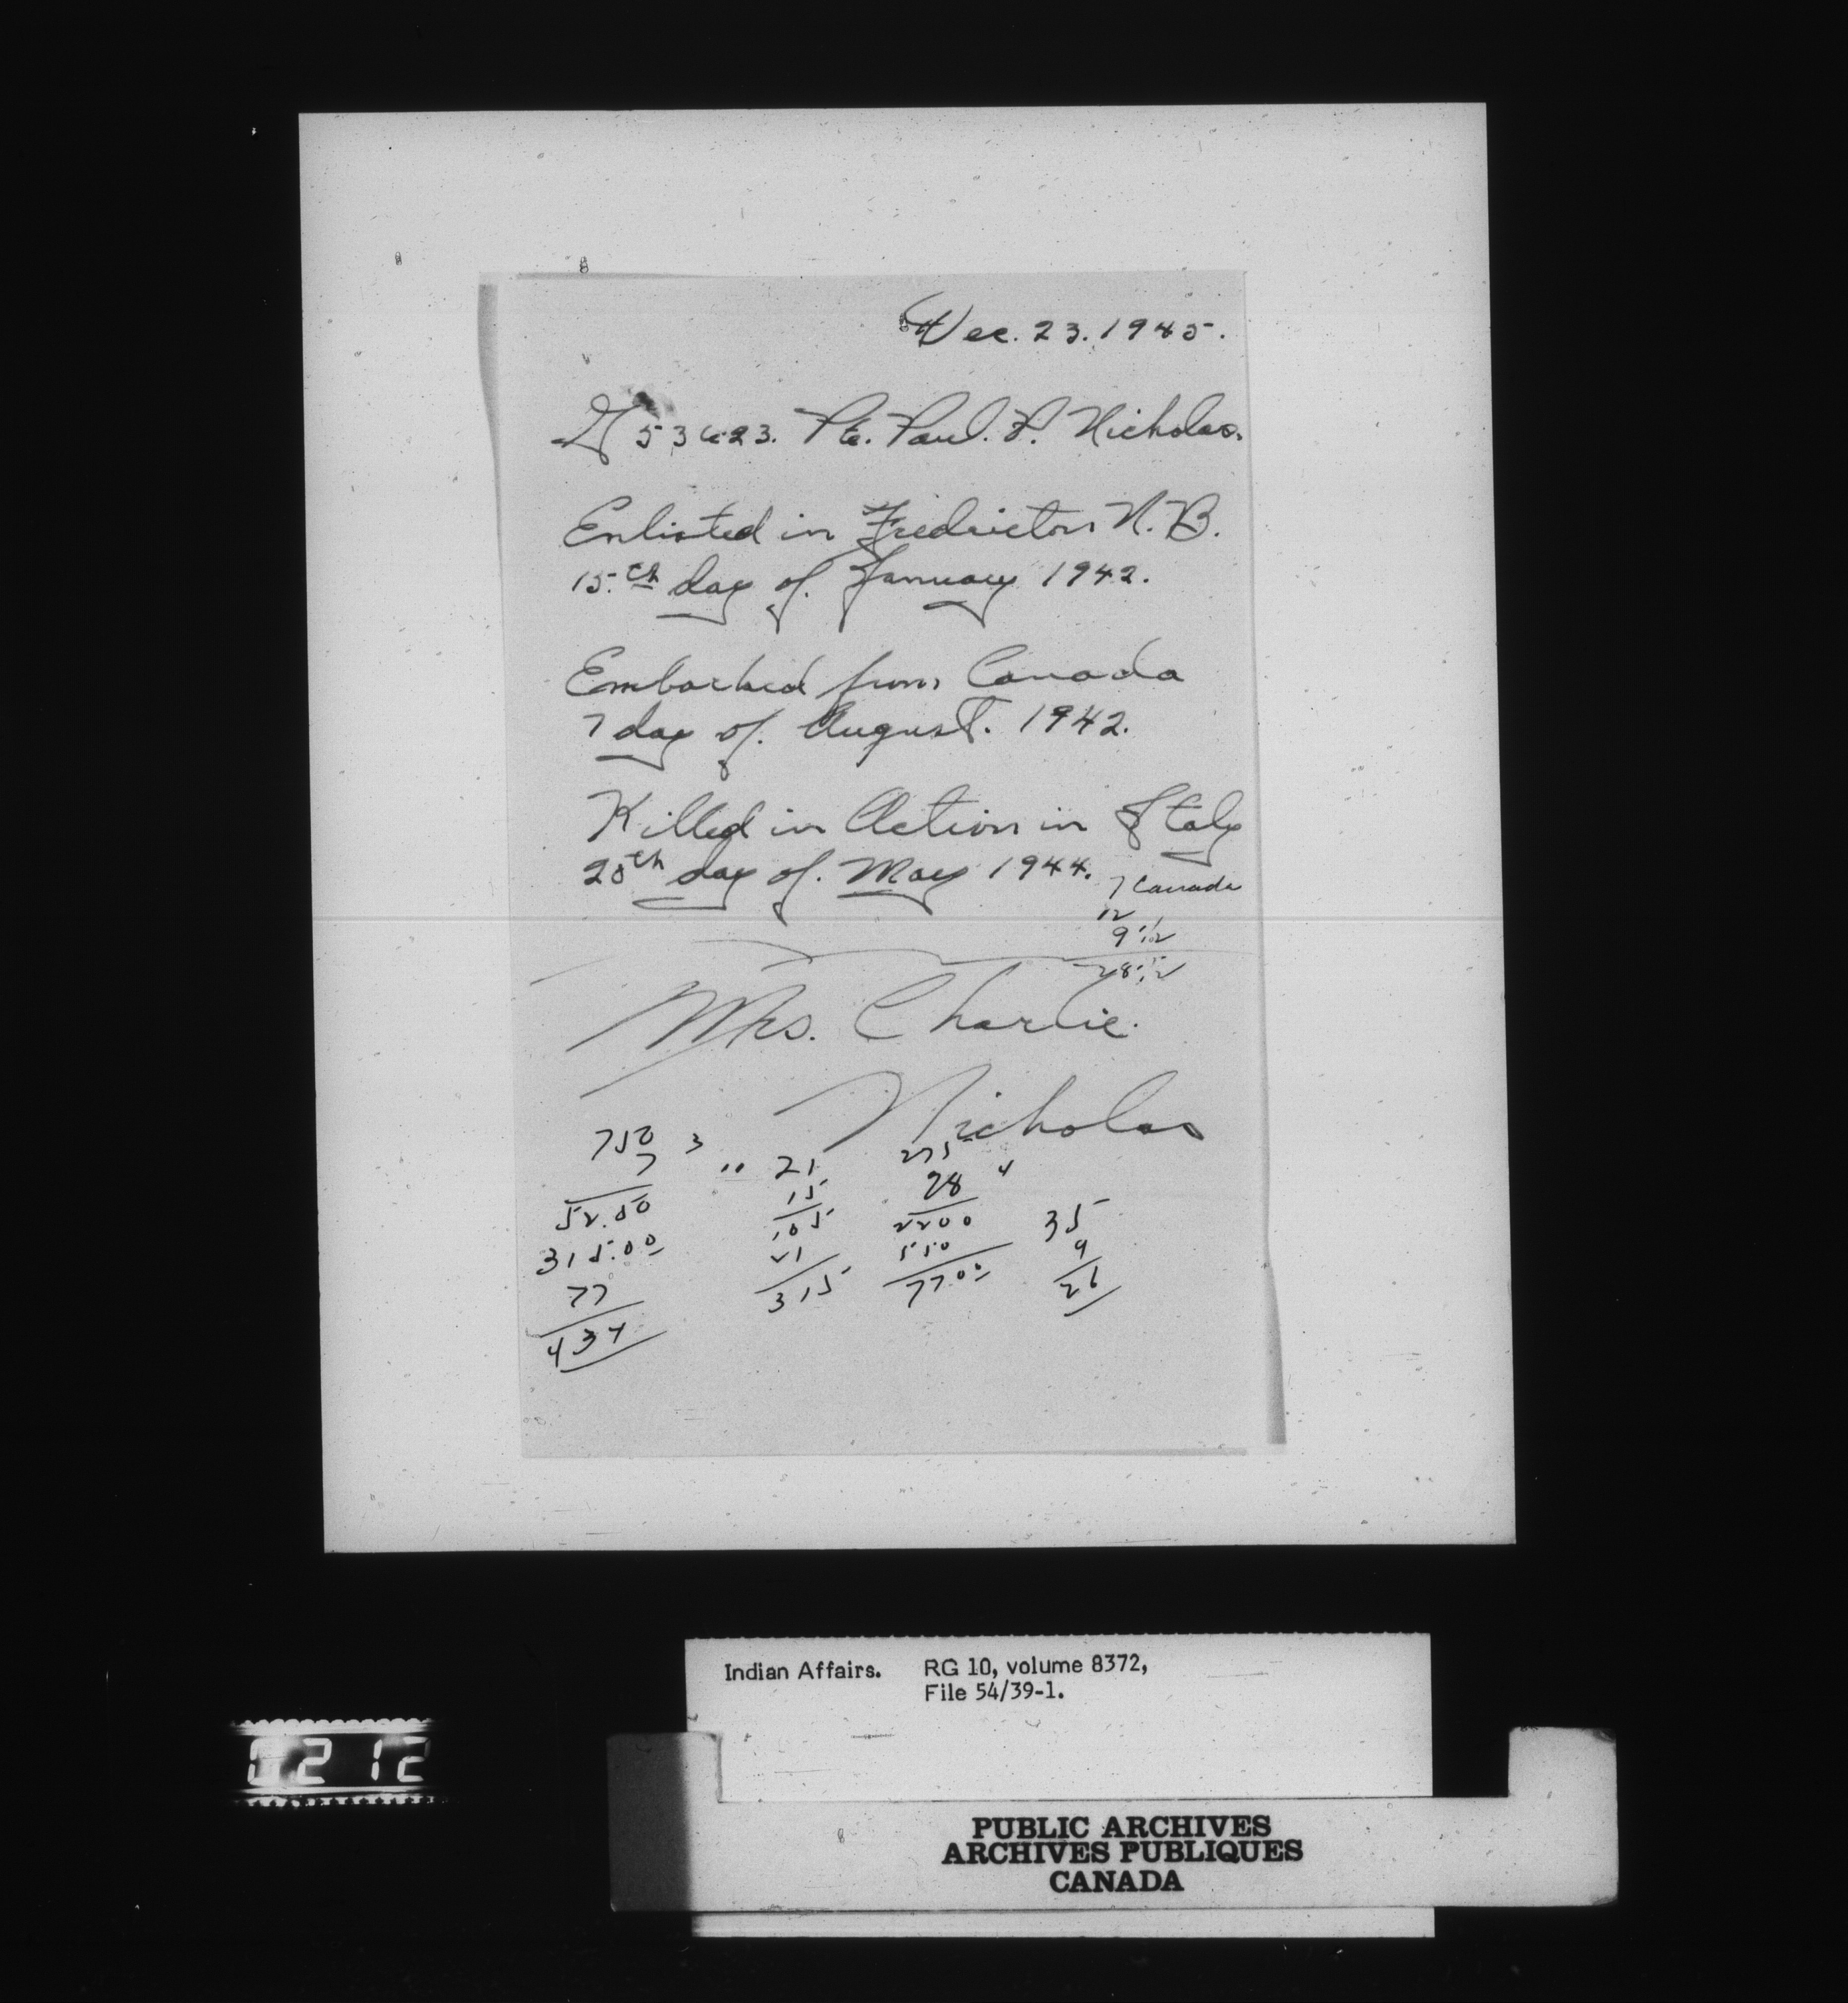 Dec. 23. 1945.
G 53623. Pte. Paul. P. Nicholas.
Enlisted in Fredricton N.B.
15.th day of. January 1942.
Embarked from Canada
7 day of. August. 1942.
Killed in Action in Italy
20th day of. May 1944.
7 Canada
12
9 1/2
28 1/2
Mrs. Charlie.
Nicholas
750 3 " 21 275
7 15 28 4
52.50 105 2200 35
315.00 21 550 9
77 315 7700 26
434
Indian Affairs. RG 10, volume 8372,
File 54/39-1.
0212
PUBLIC ARCHIVES
ARCHIVES PUBLIQUES
CANADA